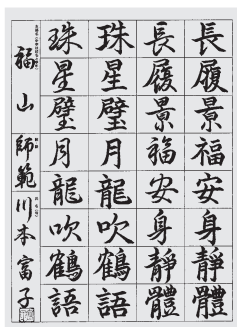 長履景福安身靜體
長履景福安身靜體
珠星璧月龍吹鶴語
珠星璧月龍吹鶴語
福山
師範
川本富子